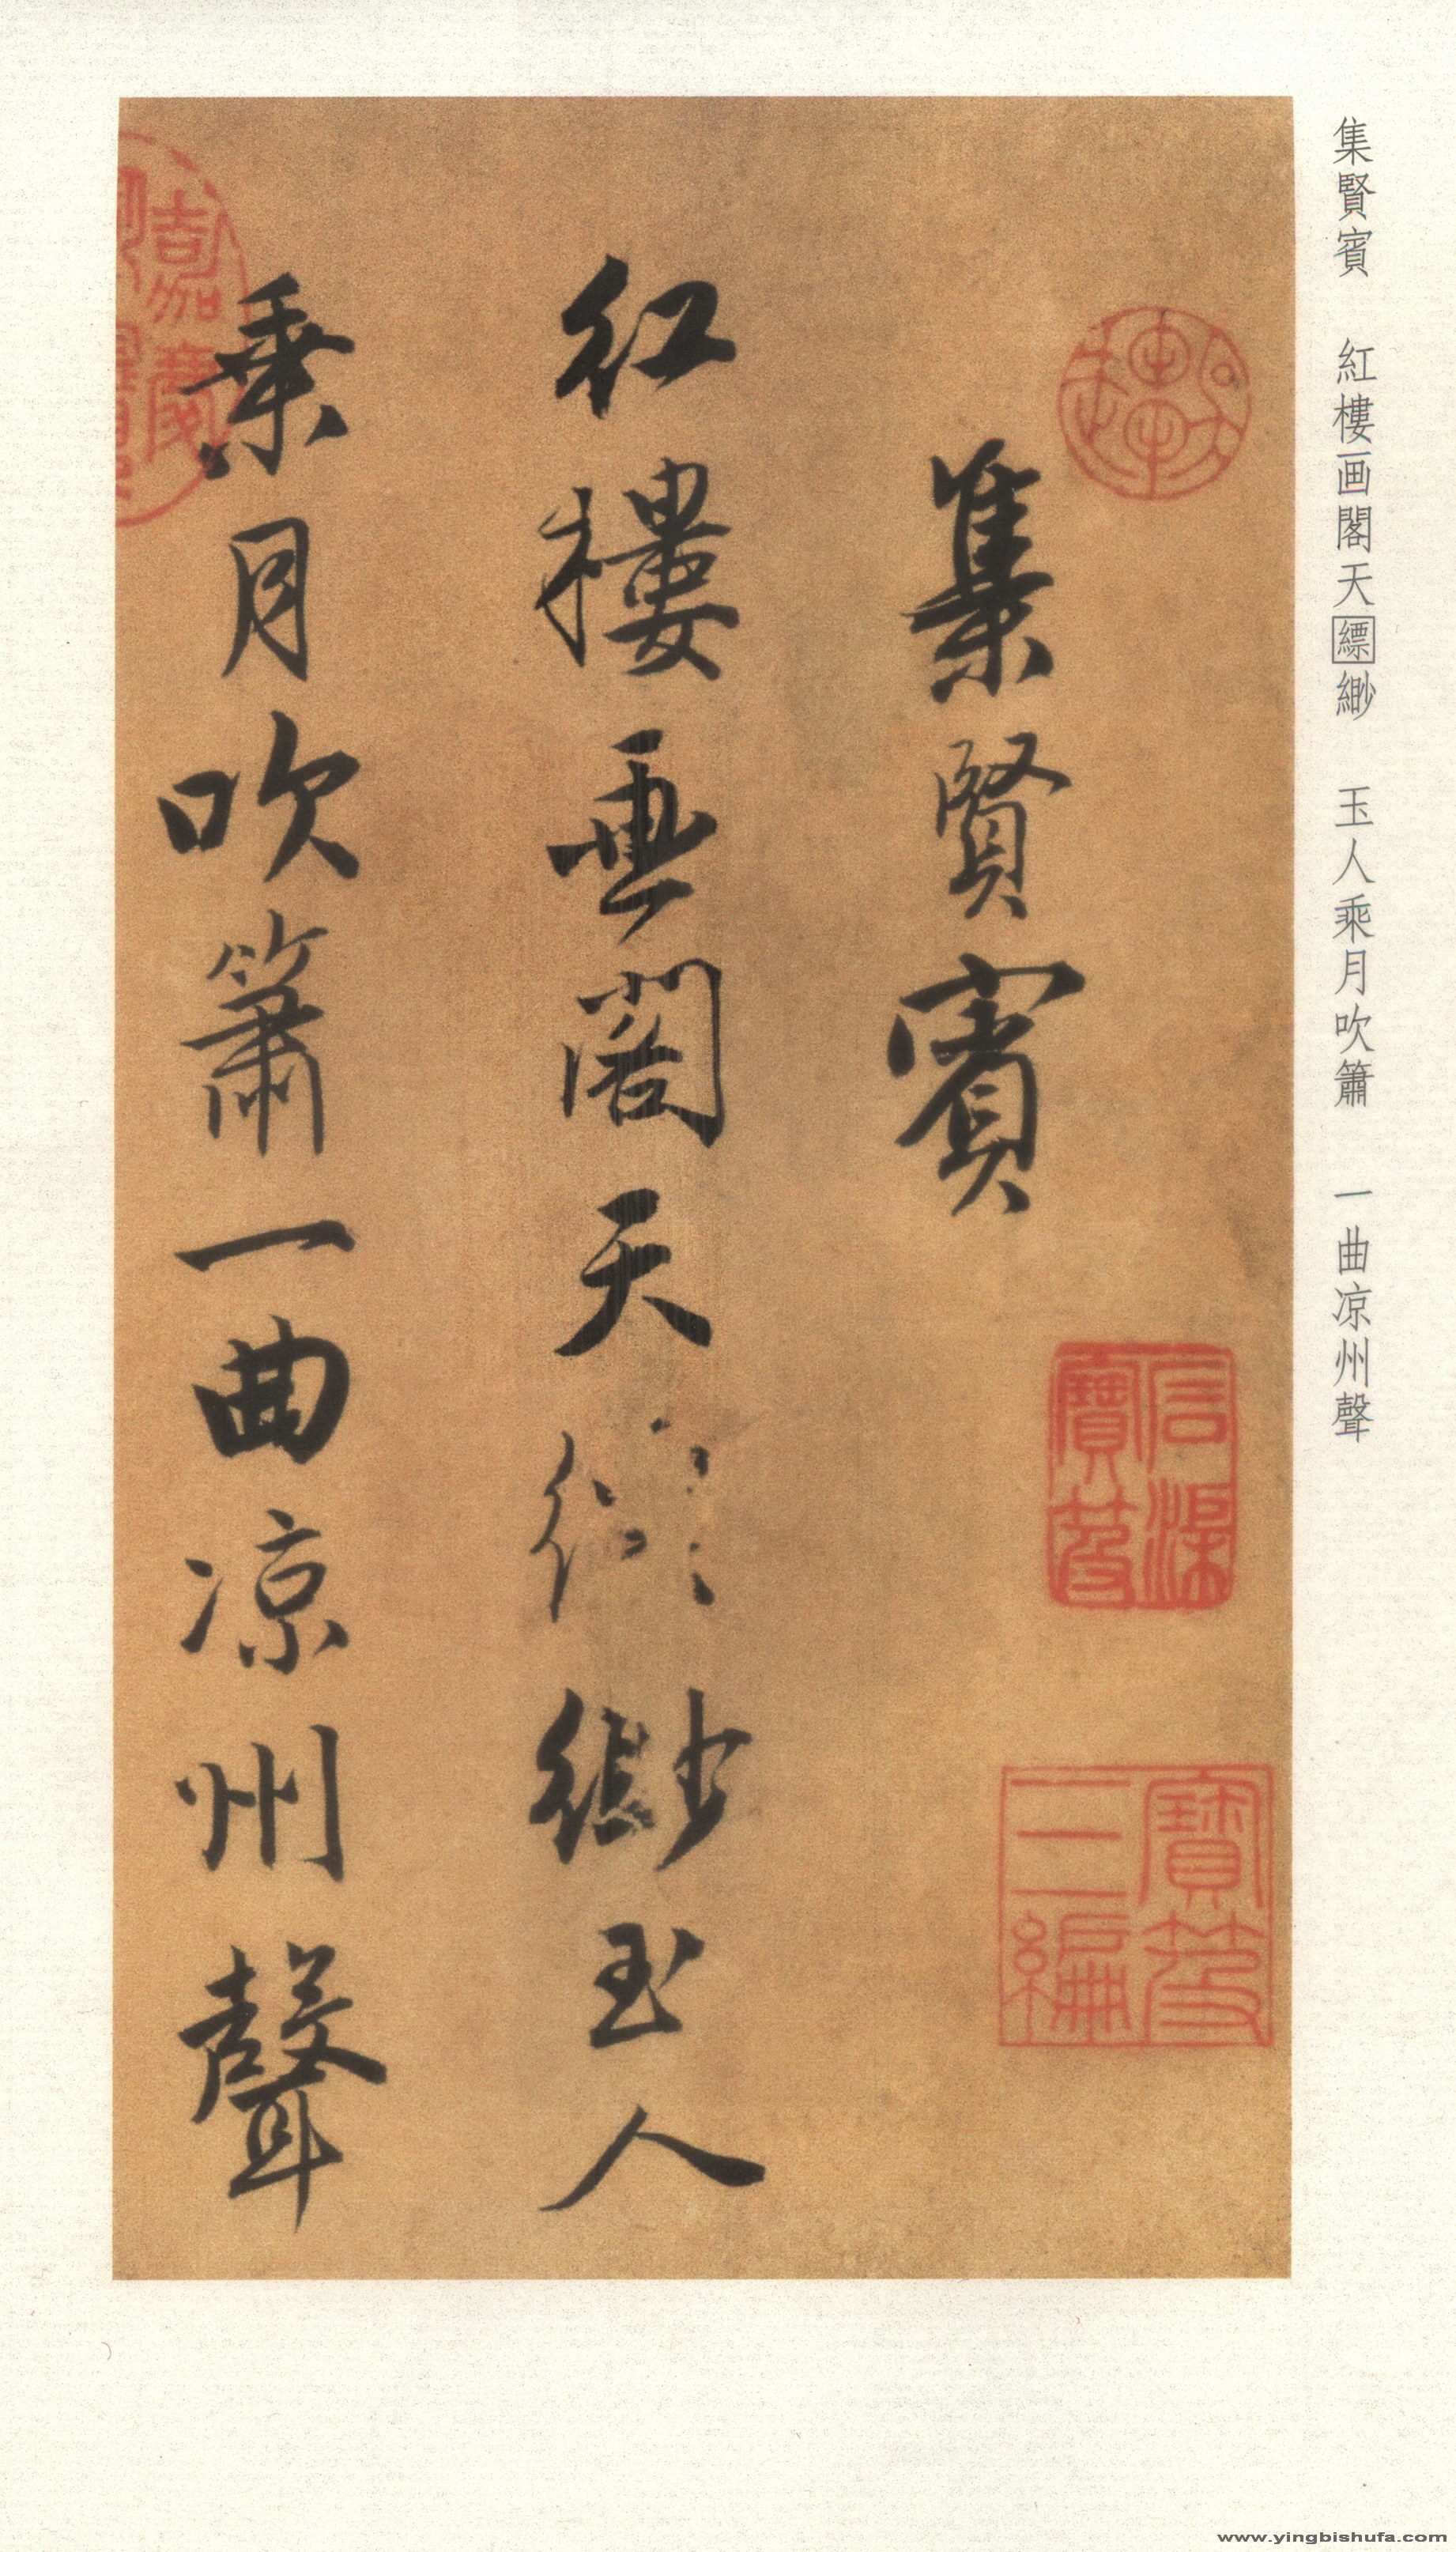 集賢賓　紅樓画閣天縹緲　玉人乘月吹簫　一曲凉州聲
集賢賓
紅樓畫閣天縹緲玉人
乘月吹簫一曲凉州聲
寶笈
三編
嘉慶
www.yingbishufa.com